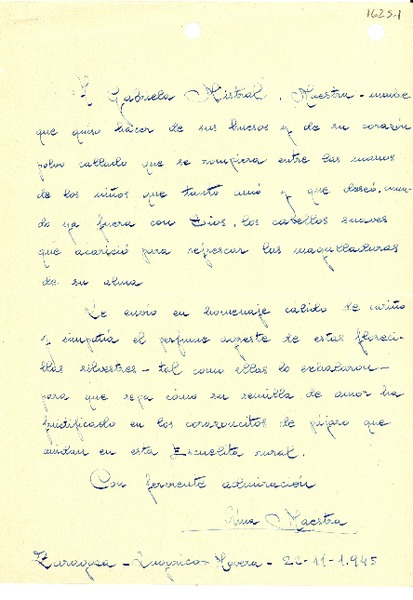 1625-1
A Gabriela Mistral, Maestra-madre
que quiso hacer de sus huesos y de su corazón
polvo callado que se rompiera entre las manos
de los niños que tanto amó y que deseó, cuan-
do ya fuera con Dios, los cabellos suaves
que acarició para refrescar las magulladuras
de su alma
Le envío en homenaje cálido de cariño
y simpatía el perfume agreste de estas floreci-
llas silvestres - tal como ellas lo exhalaron -
para que sepa cómo su semilla de amor ha
fructificado en los corazoncitos de pájaro que
anidan en esta Escuelita rural.
Con ferviente admiración
Una Maestra
Zaragoza - - 22-11-1.945